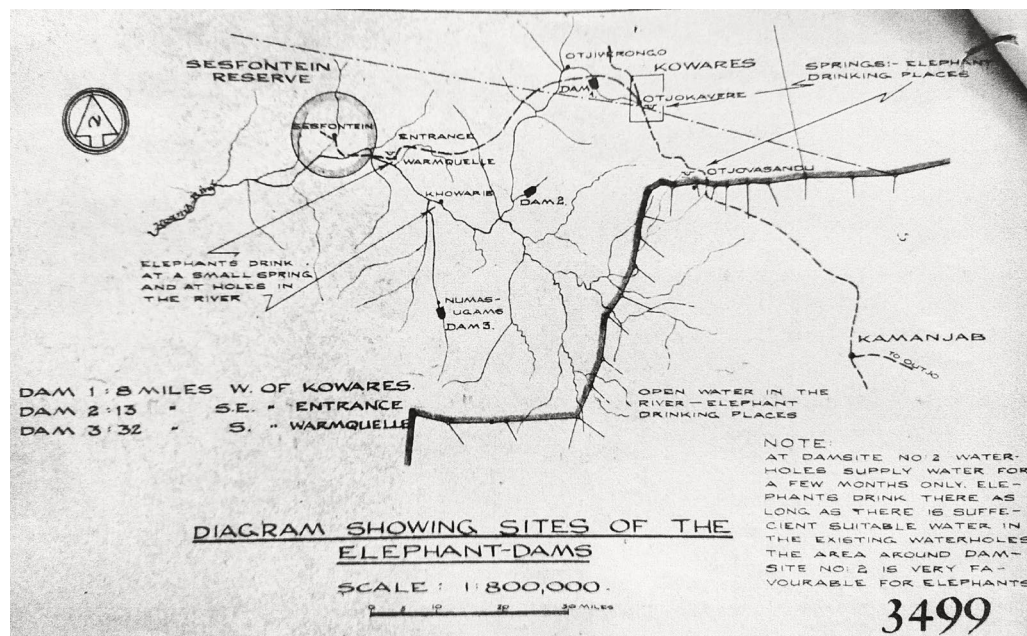 SESFONTEIN
RESERVE
OTJIVERONGO
KOWARES
SPRINGS:- ELEPHANT
DRINKING PLACES
DAM
OTJOKAVERE
SESFONTEIN
ENTRANCE
WARMQUELLE
OTJOVASANDU
KHOWARIB
DAM 2.
ELEPHANTS DRINK
AT A SMALL SPRING
AND AT HOLES IN
THE RIVER
NUMAS-
UGAMS
DAM 3.
KAMANJAB
TO OUTJO
DAM 1 : 8 MILES W. OF KOWARES.
DAM 2 : 13 " S.E. " ENTRANCE
DAM 3 : 32 " S. " WARMQUELLE
OPEN WATER IN THE
RIVER - ELEPHANT
DRINKING PLACES
NOTE:
AT DAMSITE NO: 2 WATER-
HOLES SUPPLY WATER FOR
A FEW MONTHS ONLY. ELE-
PHANTS DRINK THERE AS
LONG AS THERE IS SUFFE-
CIENT SUITABLE WATER IN
THE EXISTING WATERHOLES
THE AREA AROUND DAM-
SITE NO: 2 IS VERY FA-
VOURABLE FOR ELEPHANTS
DIAGRAM SHOWING SITES OF THE
ELEPHANT-DAMS
SCALE : 1:800,000.
0 5 10 20 30 MILES
3499